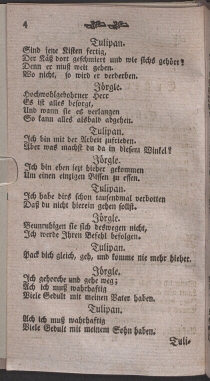 4
Tulipan.
Sind jene Kisten fertig,
Der Käß wol geschmiert und wie sichs gehört?
Denn er muß weit gehen.
Wo nicht, so wird er verderben.
Jörgle.
Hochwohlgebohrner Herr
Es ist alles besorgt,
Und wann sie es verlangen
So kann alles alsbald abgehen.
Tulipan.
Ich bin mit der Arbeit zufrieden.
Aber was machst du da in diesem Winkel?
Jörgle.
Ich bin eben jezt hieher gekommen
Um einen einzigen Bissen zu essen.
Tulipan.
Ich habe dirs schon tausendmal verbotten
Daß du nicht hierein gehen sollst.
Jörgle.
Beunruhigen sie sich deswegen nicht,
Ich werde Ihren Befehl befolgen.
Tulipan.
Pack dich gleich, geh, und komme nie mehr hieher.
Jörgle.
Ich gehorche und gehe weg;
Ach ich muß wahrhaftig
Viele Gedult mit meinen Vater haben.
Tulipan.
Ach ich muß wahrhaftig
Viele Gedult mit meinem Sohn haben.
Tuli-